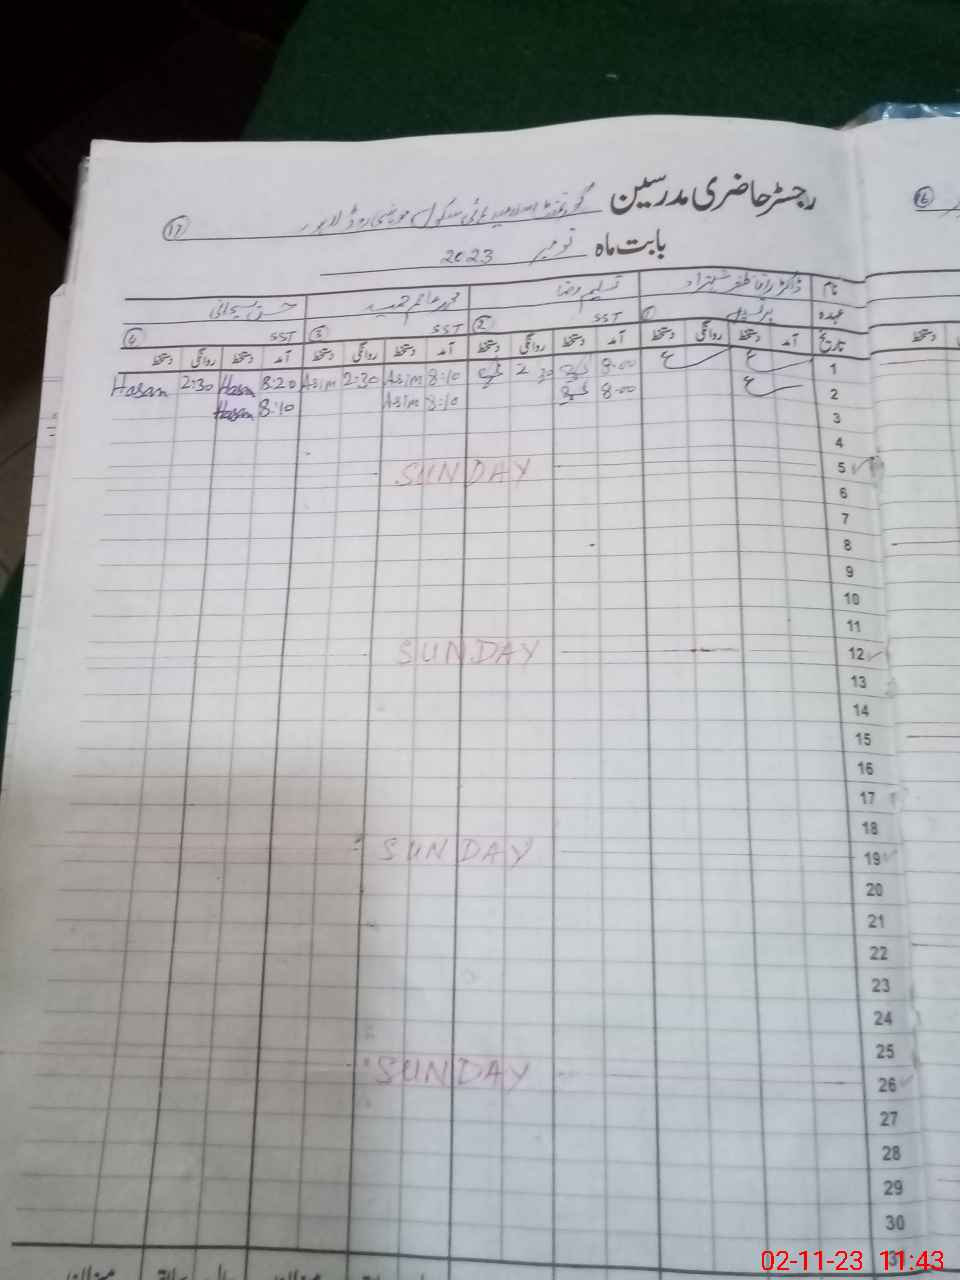 رجسٹر حاضری مدرسین گورنمنٹ اسلامیہ ہائی سکول روڈ لاہور ⑰
⑯
بابت ماہ نومبر 2023
نام ڈاکٹر شہزاد تسلیم رضا محمد عاصم حمید حسن
عہدہ پرنسپل ① SST ② SST ③ SST ④
تاریخ آمد دستخط روانگی دستخط آمد دستخط روانگی دستخط آمد دستخط روانگی دستخط آمد دستخط روانگی دستخط
دستخط
1 8:00 2:30 8:10 Asim 2:30 Asim 8:20 Hasan 2:30 Hasan
2 8:00 8:10 Asim 8:10 Hasan
3
4
5 SUNDAY
6
7
8
9
10
11
12 SUNDAY
13
14
15
16
17
18
19 SUNDAY
20
21
22
23
24
25
26 SUNDAY
27
28
29
30
31
02-11-23 11:43